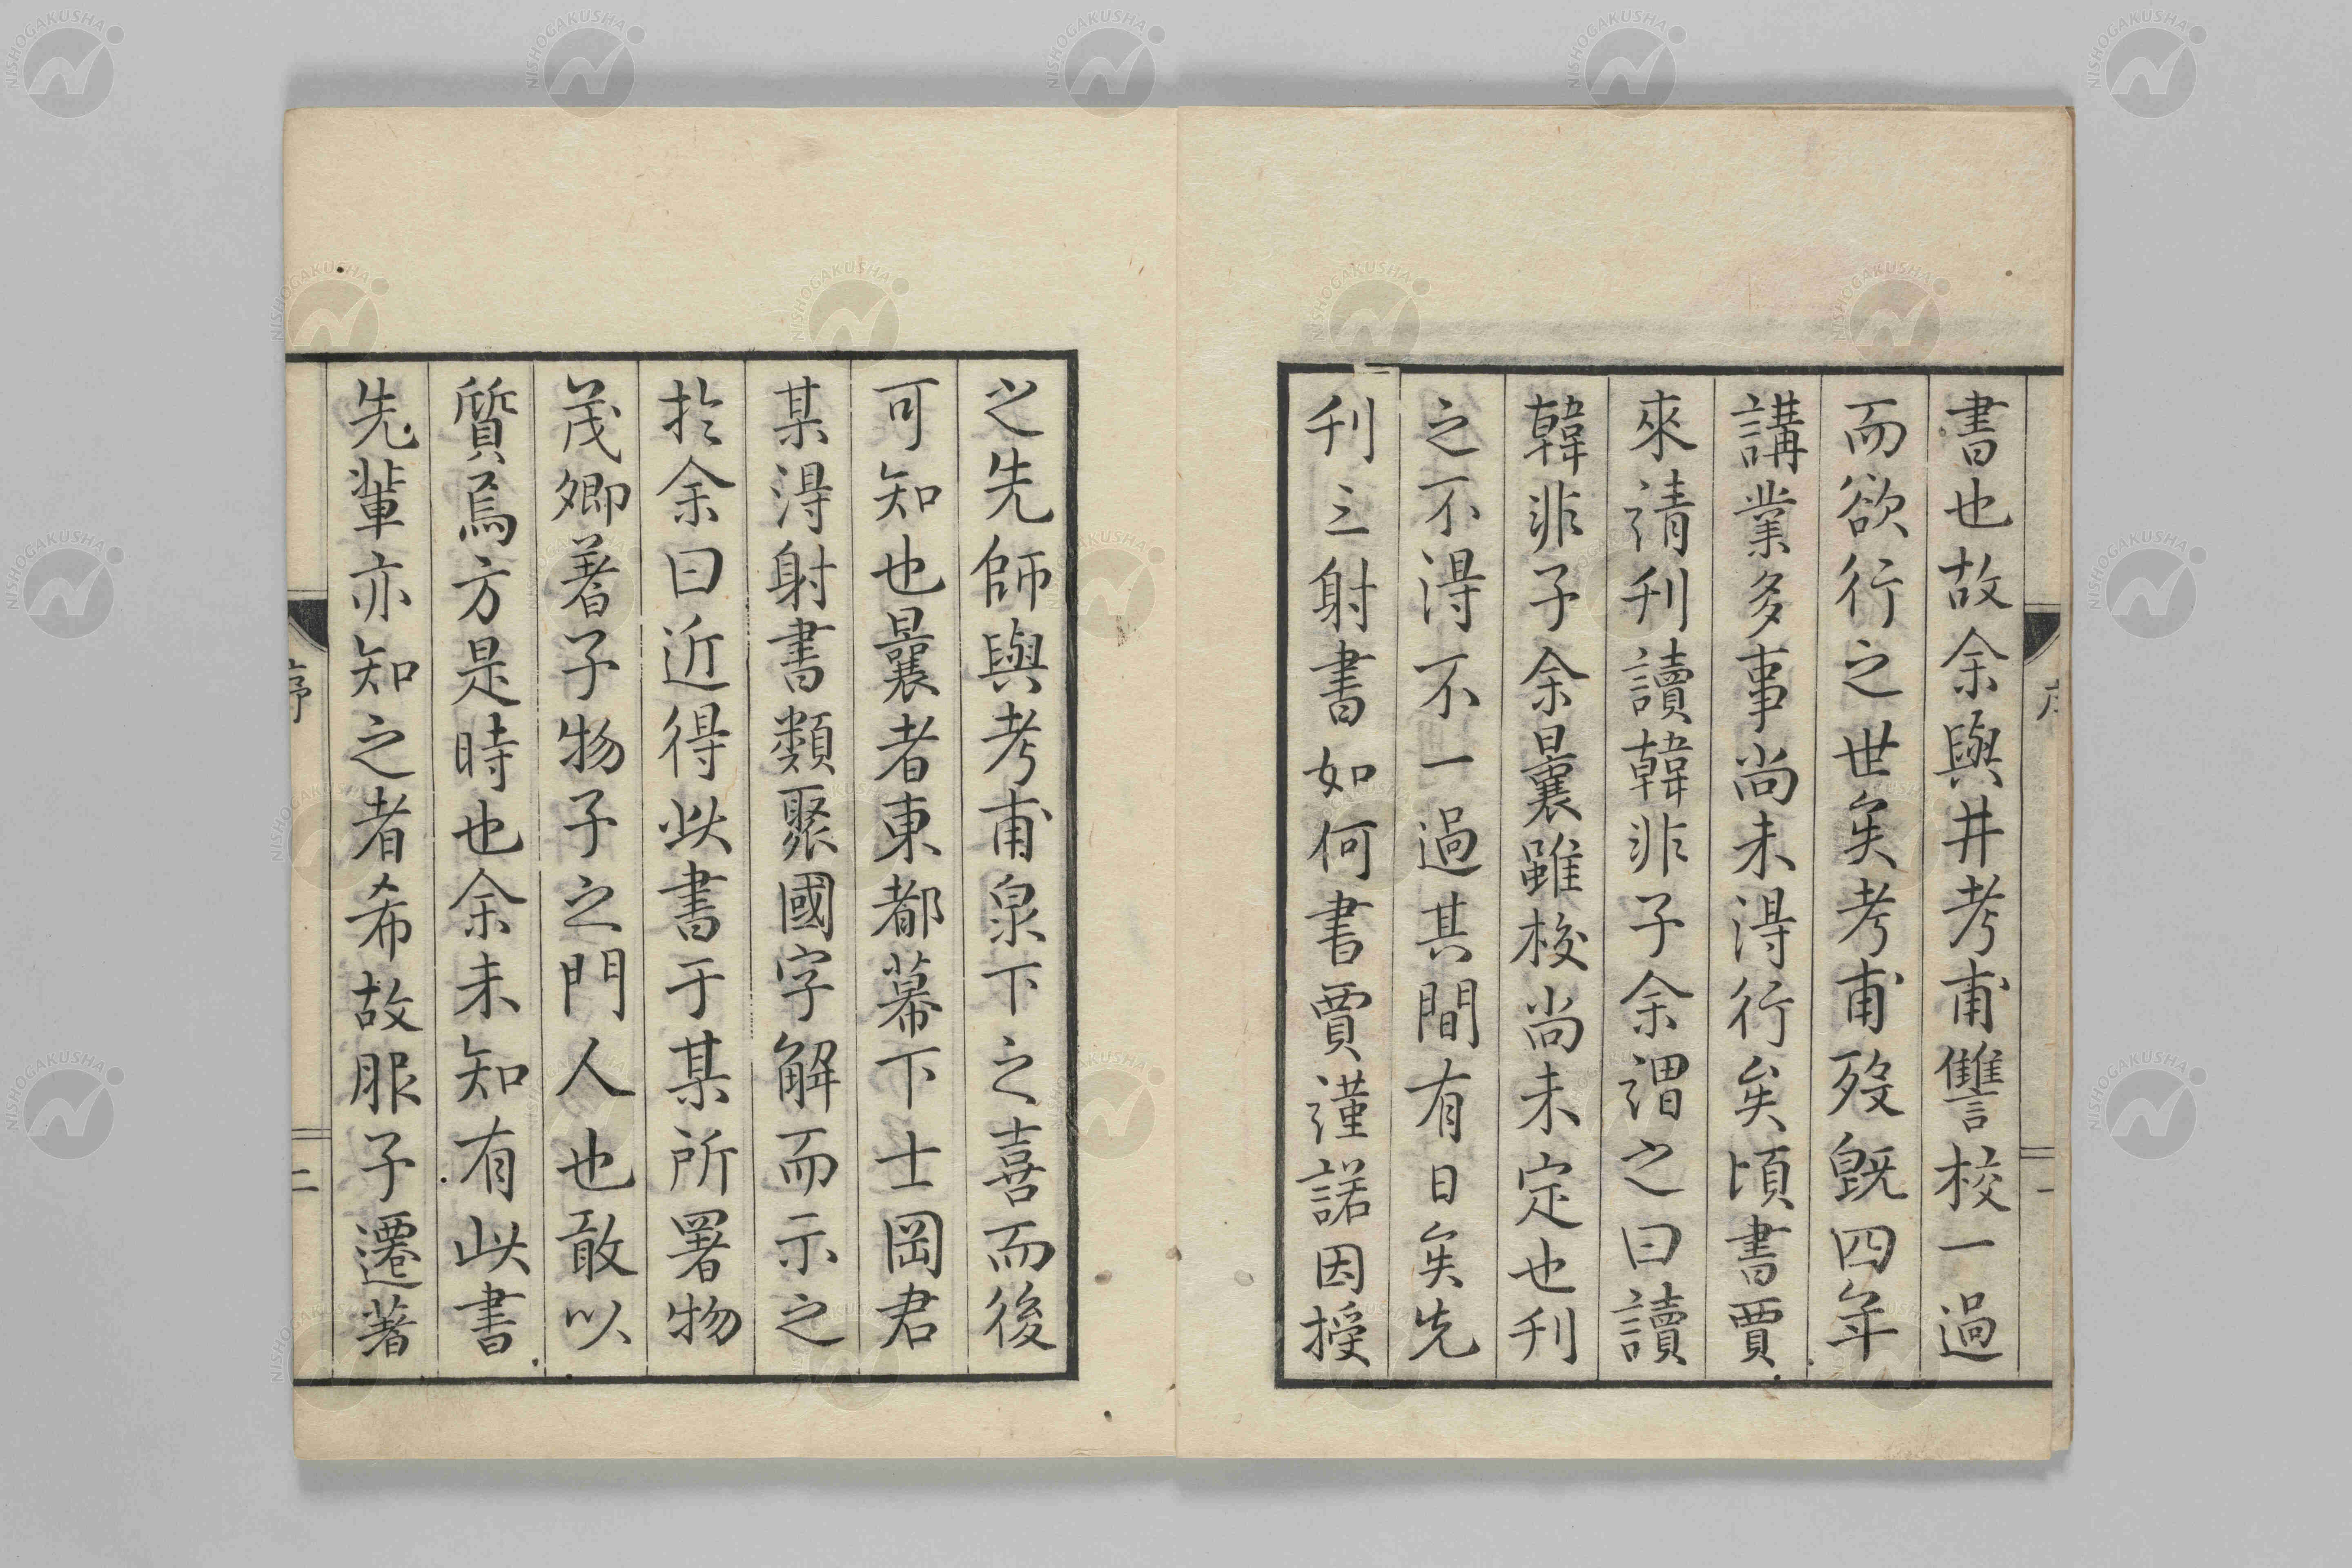 書也故余與井考甫讐校一過
而欲行之世矣考甫歿既四年
講業多事尚未得行矣頃書賈
來請刋讀韓非子余謂之曰讀
韓非子余曩雖挍尚未定也刋
之不得不一過其間有日矣先
刋三射書如何書賈謹諾因授
之先師與考甫泉下之喜而後
可知也曩者東都幕下士岡君
某得射書類聚國字解而示之
於余曰近得此書于某所署物
茂卿著子物子之門人也敢以
質焉方是時也余未知有此書
先輩亦知之者希故服子遷著
序
一
二
NISHOGAKUSHA